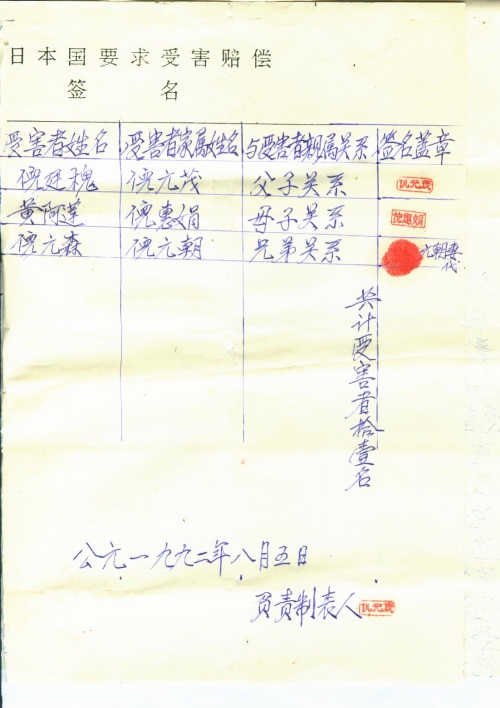 日本国要求受害赔偿
签 名
受害者姓名 受害者家属姓名 与受害者親属关系 签名盖章
倪廷槐 倪元茂 父子关系 仉元茂
黄阿莲 倪惠娟 母子关系 倪惠娟
倪元森 倪元朝 兄弟关系 元朝妻代
共计受害者拾壹名
公元一九九二年八月五日
負责制表人 仉元茂